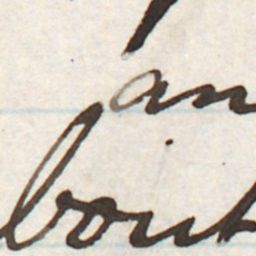 an
bout